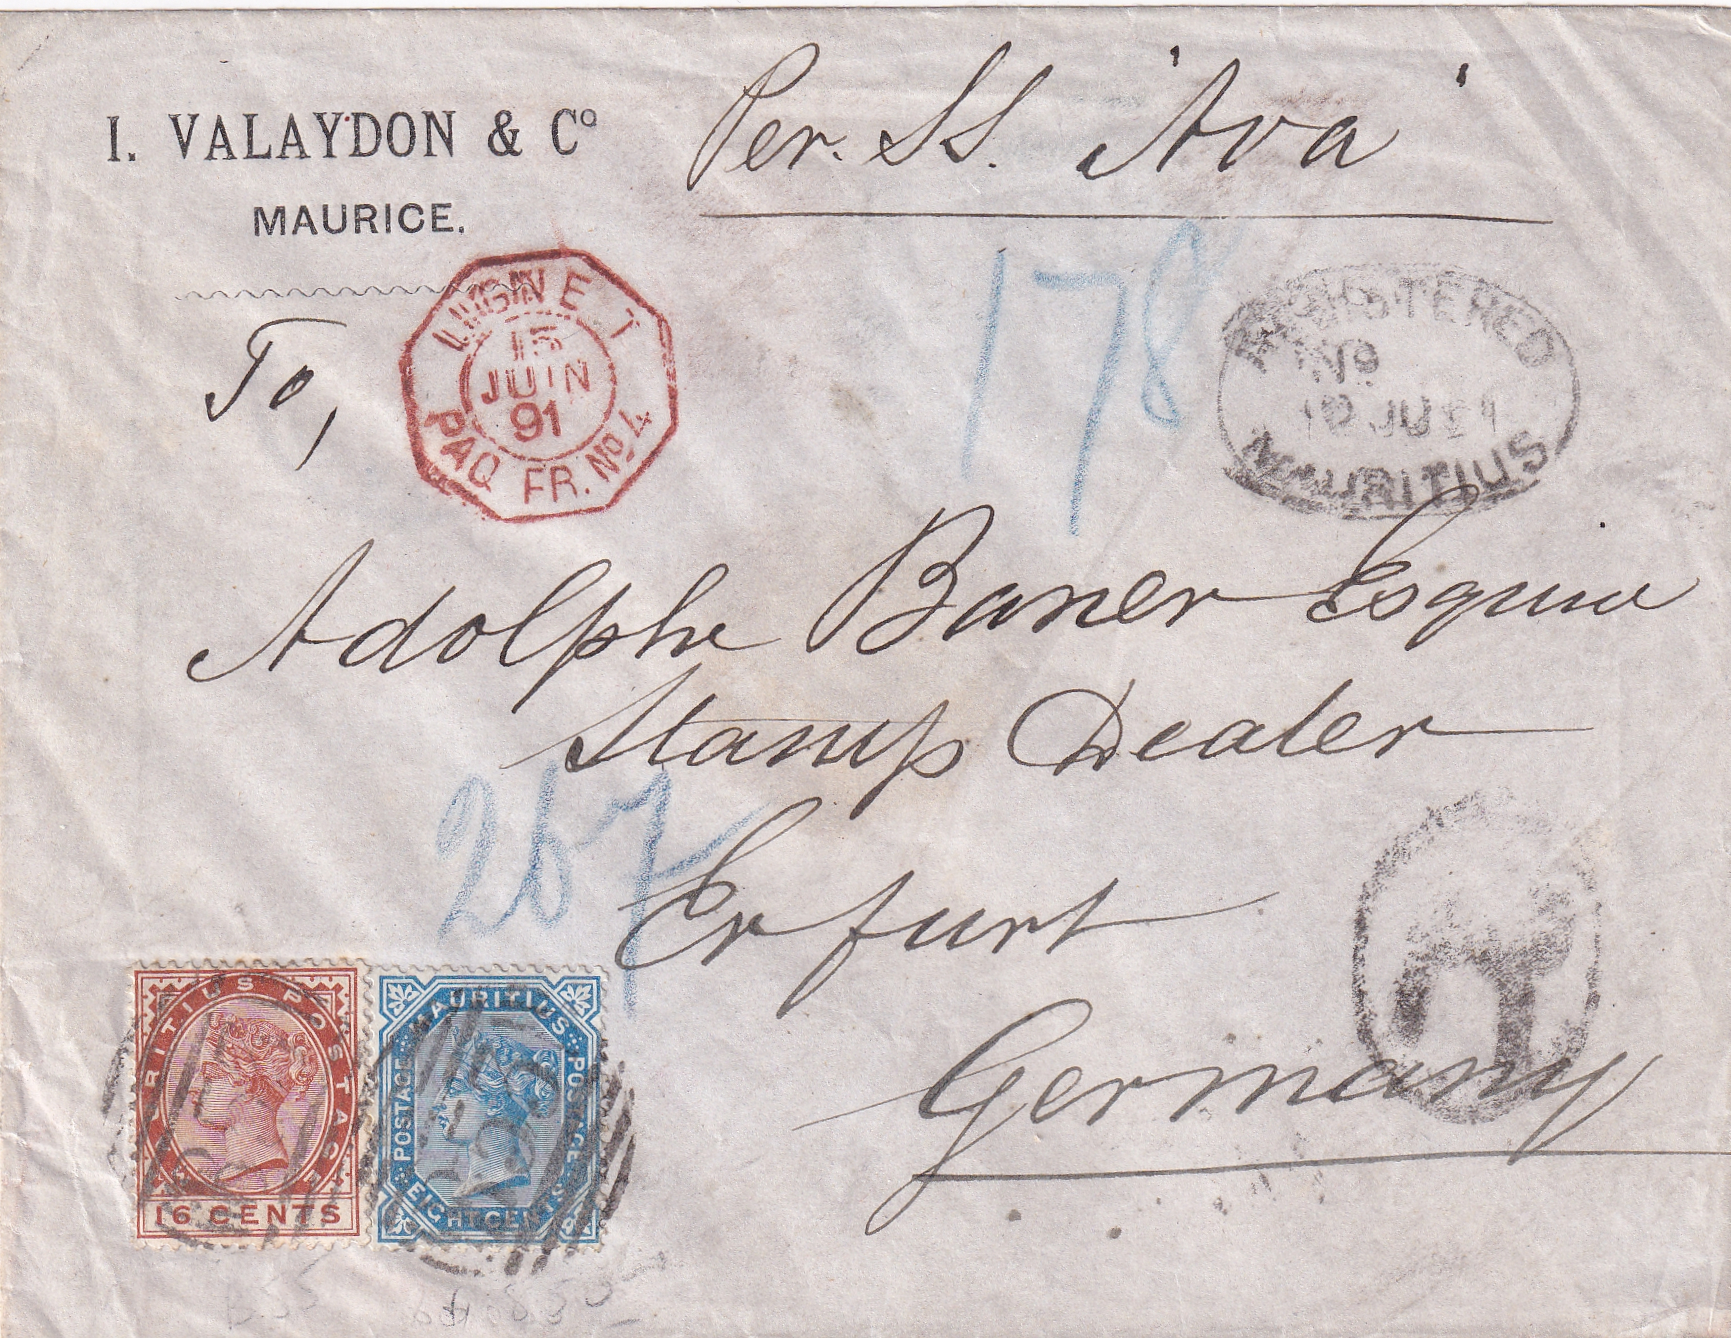 I. VALAYDON & Cº
MAURICE.
Per. SS. "Ava"
LIGNE T
15
JUIN
91
PAQ FR. Nº 4
178
REGISTERED
Nº
MAURITIUS
To,
Adolphe Baner Esquire
Stamp Dealer
267
Erfurt
Germany
R
MAURITIUS POSTAGE
16 CENTS
MAURITIUS
POSTAGE
POSTAGE
EIGHT CENTS